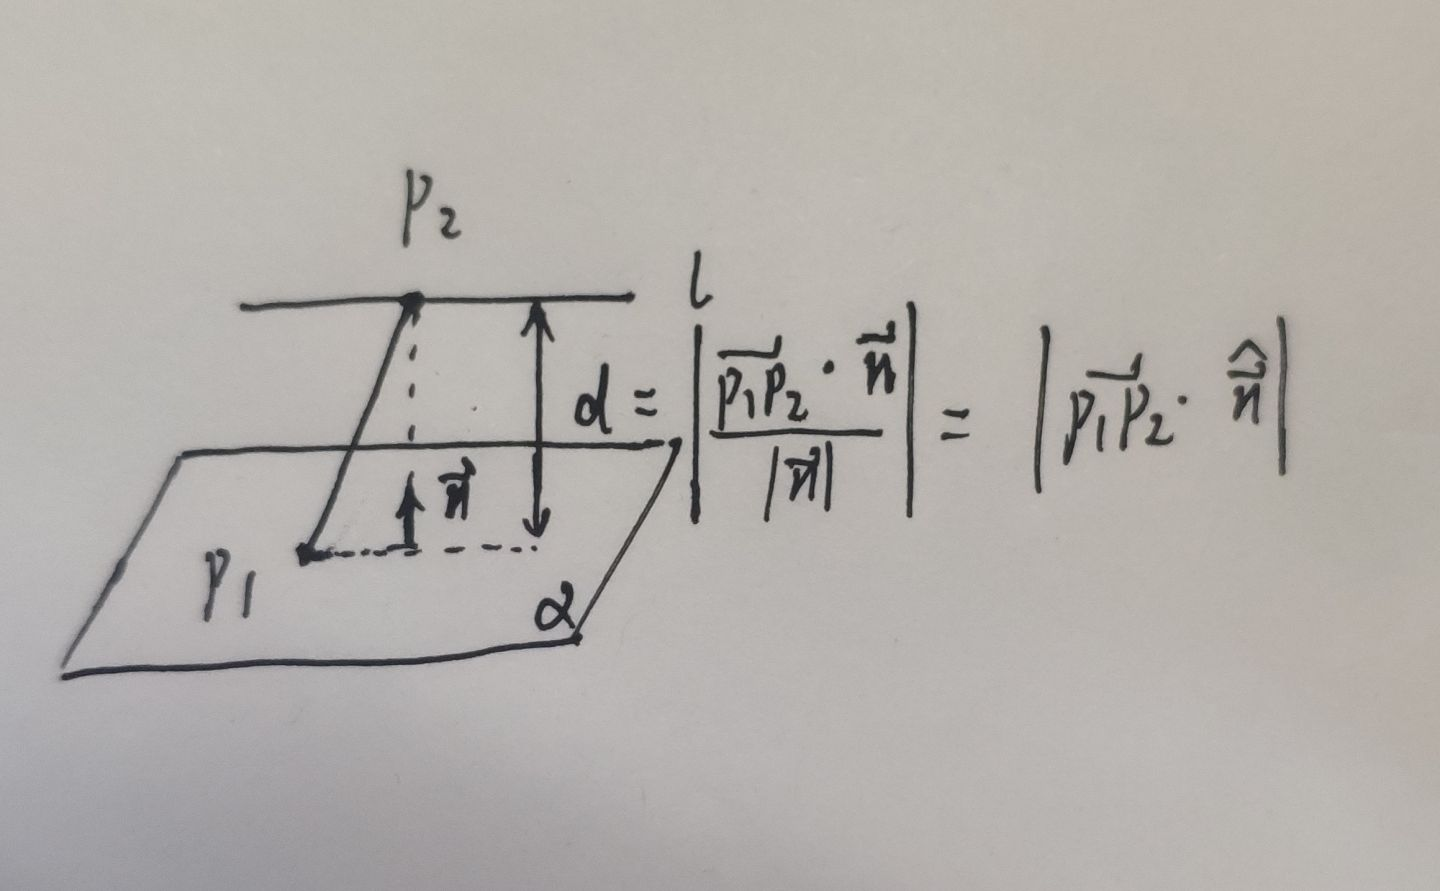 P₂
l
d = | \frac{\overrightarrow{P_1P_2} \cdot \vec{n}}{|\vec{n}|} | = | \overrightarrow{P_1P_2} \cdot \hat{\vec{n}} |
n⃗
P₁
α